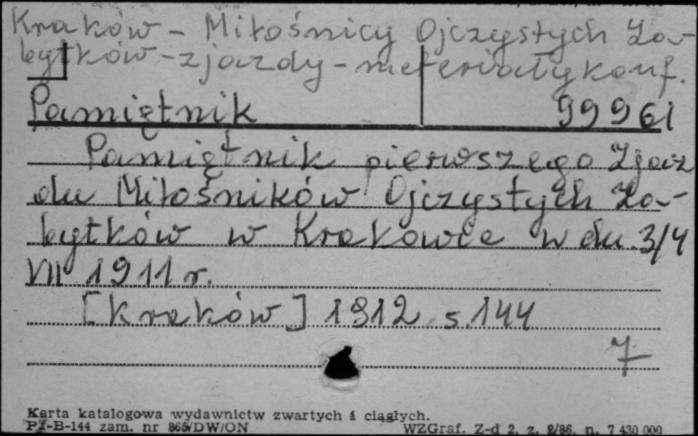 Kraków - Miłośnicy Ojczystych Za-
bytków - zjazdy - materiały konf.
Pamiętnik 99961
Pamiętnik pierwszego Zjaz
du Miłośników Ojczystych Za-
bytków w Krakowie w dn. 3/4
VII 1911 r.
[Kraków] 1912 s. 144
7
Karta katalogowa wydawnictw zwartych i ciągłych.
Pu-B-144 zam. nr 865/DW/ON WZGraf. Z-d 2, z. 2/86, n. 7 430 000